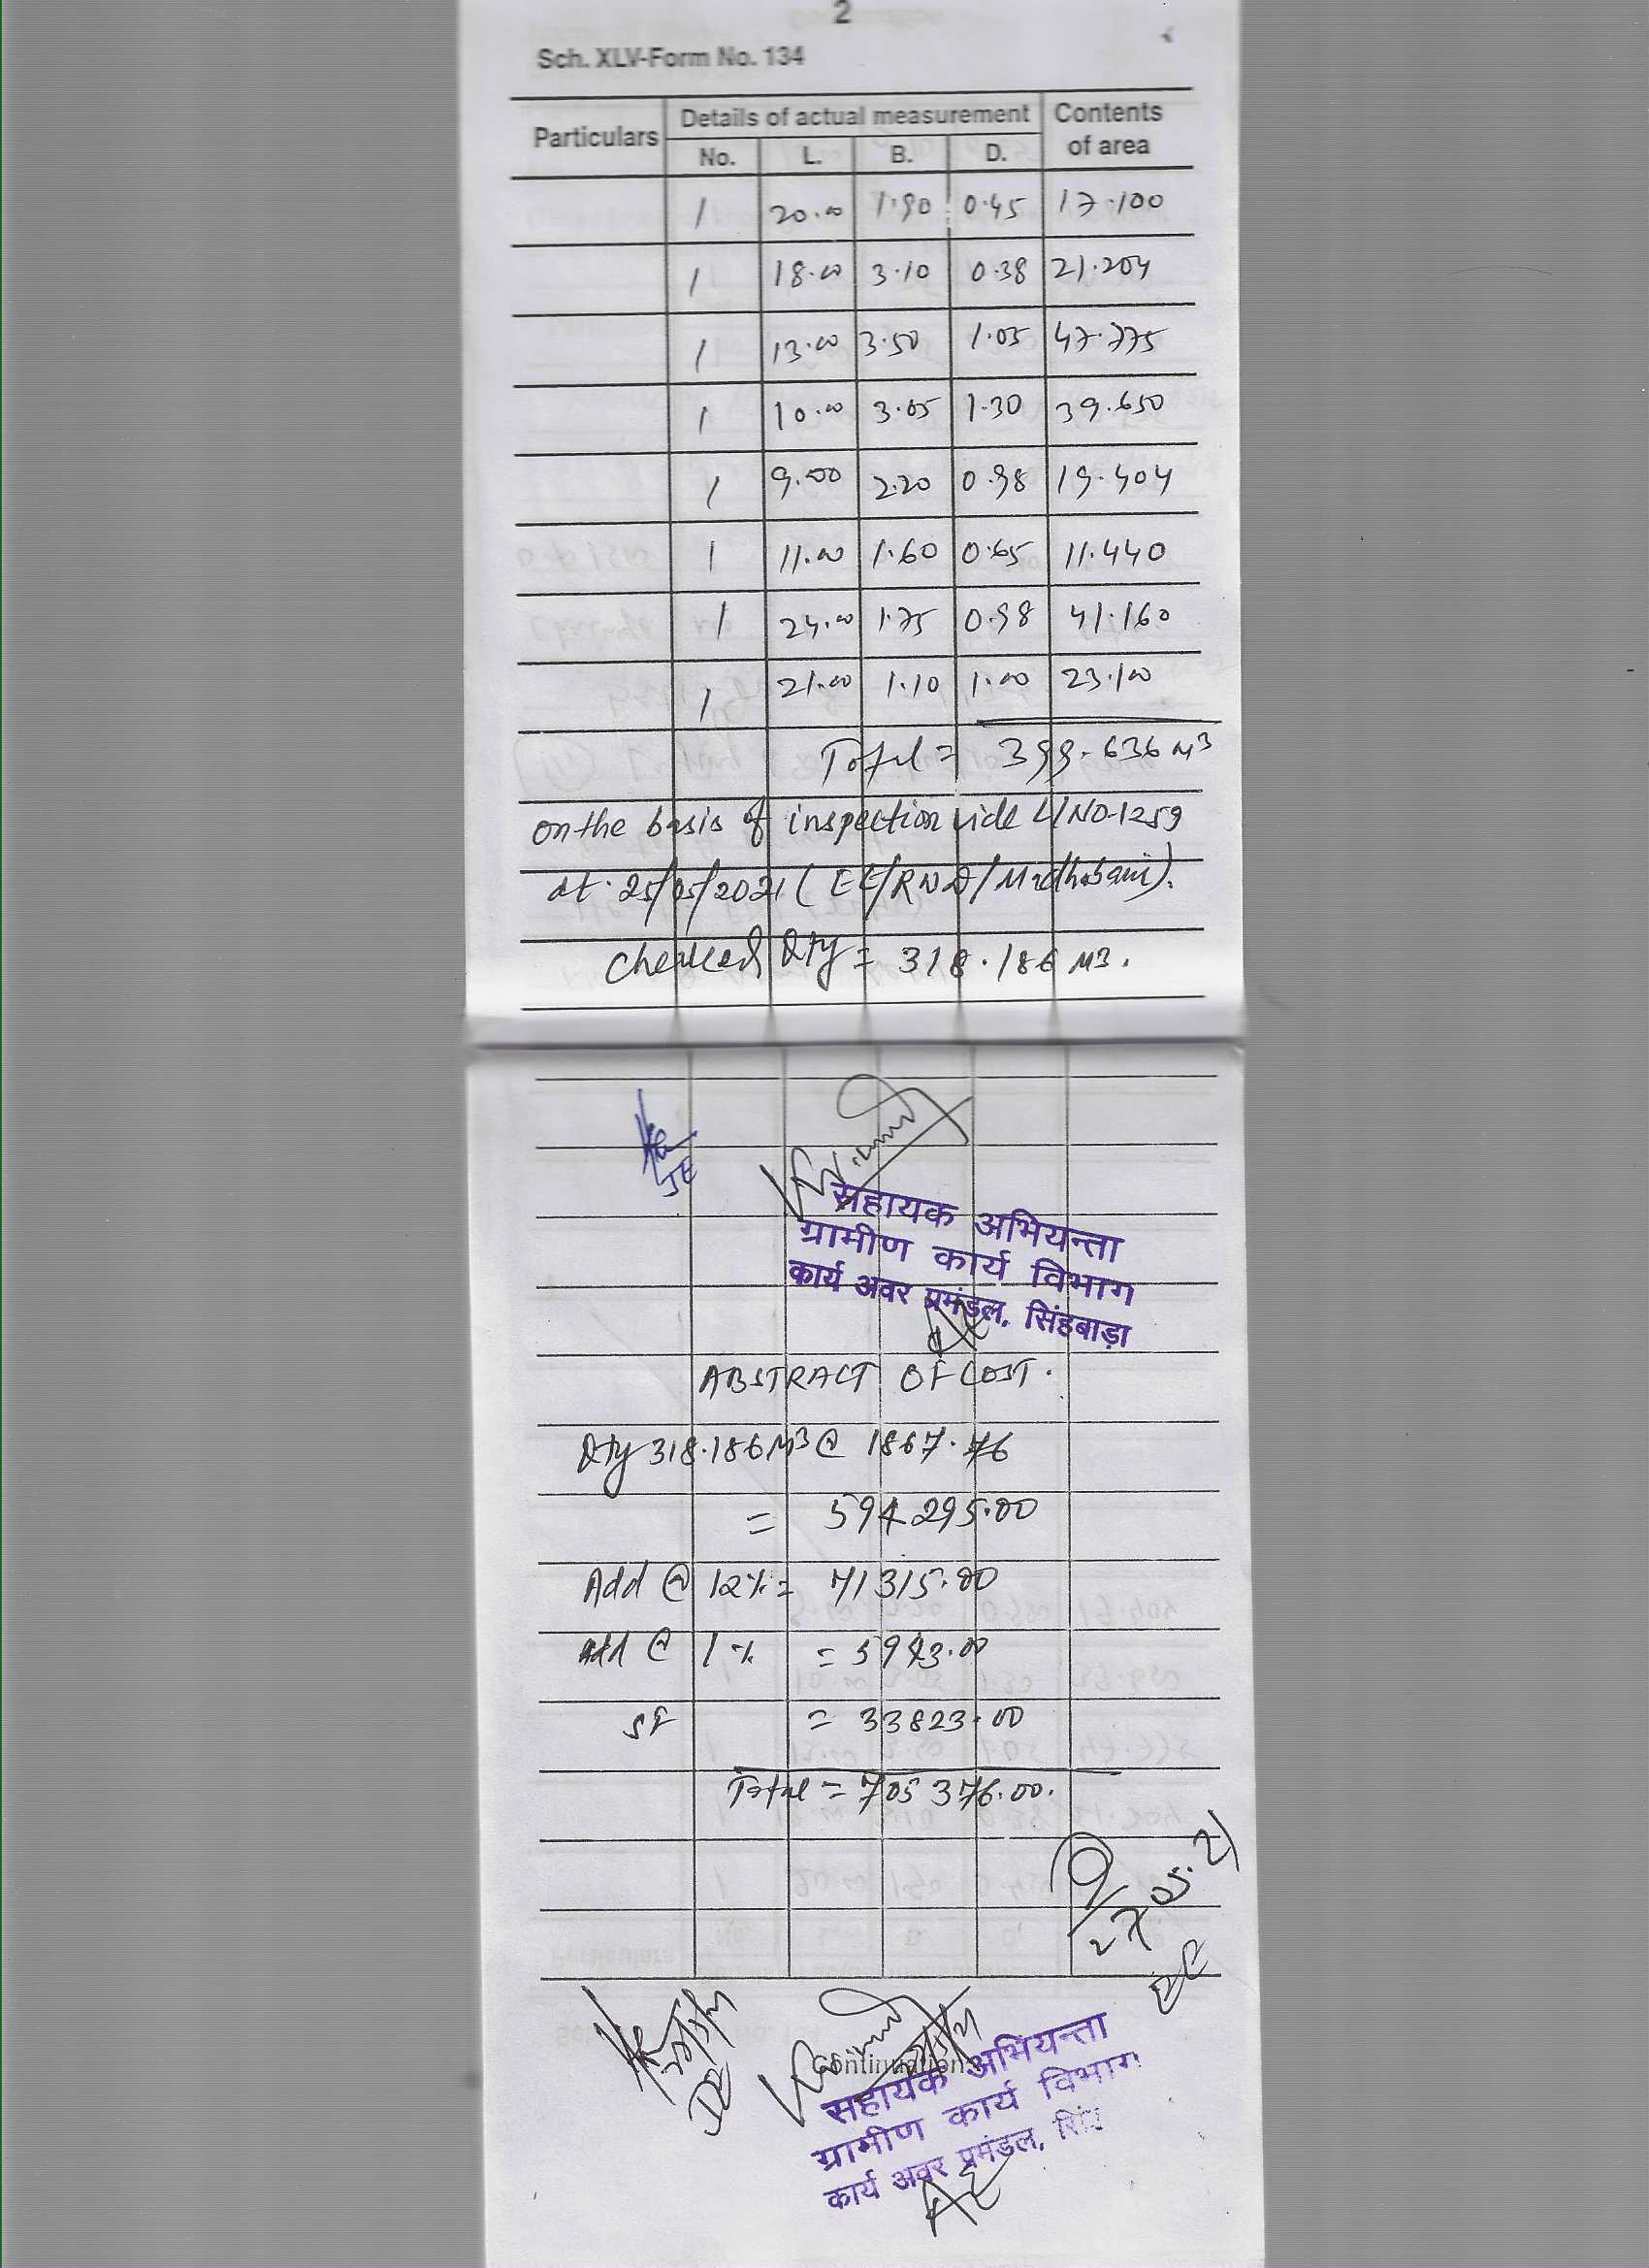 2
Sch. XLV-Form No. 134
Particulars Details of actual measurement Contents of area
No. L. B. D.
1 20.00 1.90 0.45 17.100
1 18.00 3.10 0.38 21.204
1 13.00 3.50 1.05 47.775
1 10.00 3.05 1.30 39.650
1 9.00 2.20 0.98 19.404
1 11.00 1.60 0.65 11.440
1 24.00 1.75 0.98 41.160
1 21.00 1.10 1.00 23.100
Total = 399.636 M3
on the basis of inspection vide L/NO-1259
dt. 25/05/2021 (EE/RWD/Madhubani).
checked Qty = 318.186 M3.
JE
सहायक अभियन्ता
ग्रामीण कार्य विभाग
कार्य अवर प्रमंडल, सिंहबाड़ा
ABSTRACT OF COST.
Qty 318.186 M3 @ 1867.76
= 594295.00
Add @ 12% = 71315.00
Add @ 1% = 5943.00
SF = 33823.00
Total = 705376.00.
27.05.21
EE
Continuation
सहायक अभियन्ता
ग्रामीण कार्य विभाग
कार्य अवर प्रमंडल,
AE